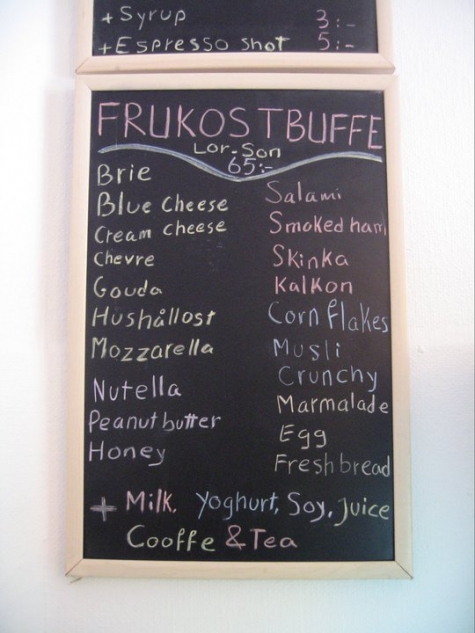 + Syrup 3:-
+ Espresso shot 5:-
FRUKOSTBUFFE
Lör-Sön
65:-
Brie
Blue Cheese
Cream cheese
Chevre
Gouda
Hushållost
Mozzarella
Nutella
Peanutbutter
Honey
Salami
Smoked ham
Skinka
Kalkon
Corn flakes
Musli
Crunchy
Marmalade
Egg
Fresh bread
+ Milk, Yoghurt, Soy, Juice
Cooffe & Tea